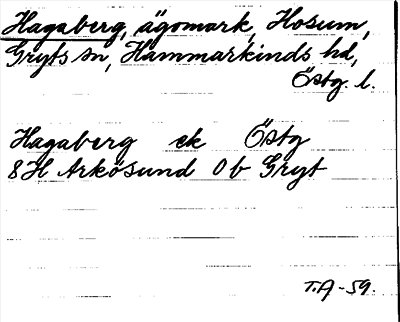 Hagaberg, ägomark, Hosum,
Gryts sn, Hammarkinds hd,
Östg. l.
Hagaberg ek Östg
8H Arkösund 0b Gryt
T.A-59.